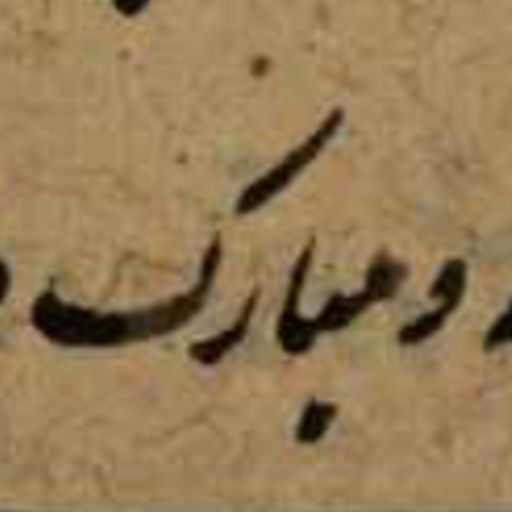 و مبارک